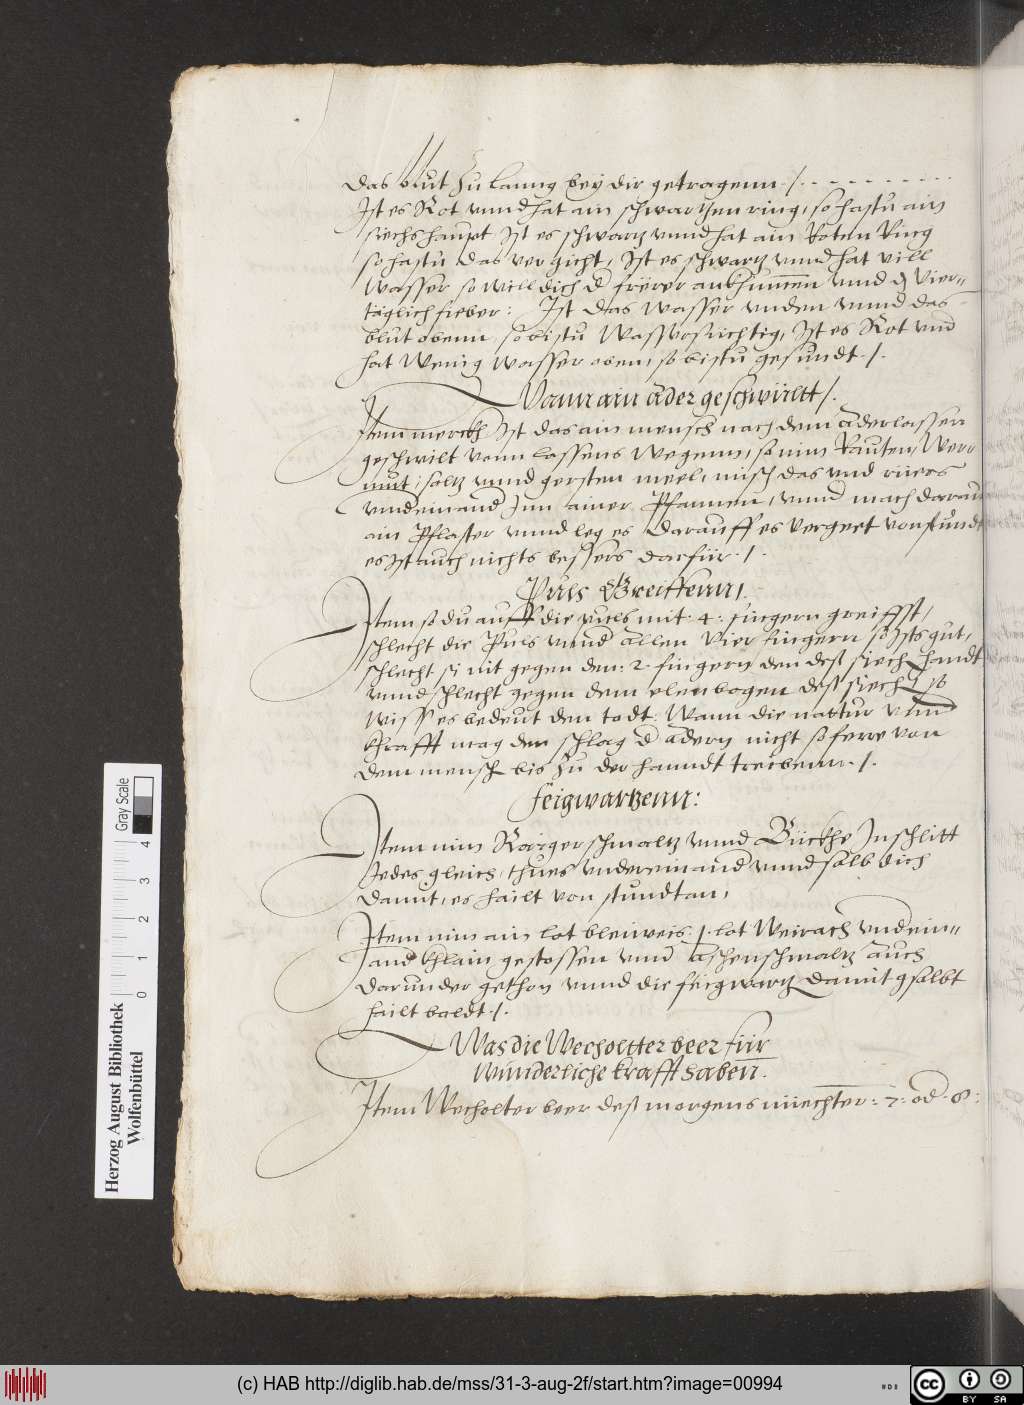 das blut zu lanng bey dir getragenn ./. . . . . . . . . .
Ist es Rot vnnd hat ain schwartzen ring, so hastu ain
siechs haupt Ist es schwartz vnnd hat ain Roten Ring
so hastu das vergicht, Ist es schwartz vnnd hat vill
Wasser so will dich d frerer ankhumen vnnd d Vier-
täglich fieber: Ist das Wasser vnden vnnd das
blut obenn so bistu Wassersüchtig, Ist es Rot vnd
hat Wenig Wasser oben, so bistu gesundt ./.
Wann ain ader geschwürltt /.
Item merckh Ist das ain mensch nach dem aderlassen
geschwilt vonn lassens wegenn, so nim Rauten, Wer
mut, saltz vnnd gersten meel, misch das vnd rüers
vndeinand Inn ainer Pfannen, vnnd mach daraus
ain Pflaster vnnd leg es darauff es vergeet von stund
es Ist auch nichts bessers darfür ./.
Puls Greiffenn /.
Item so du auff die puls mit .4. fingern greiffst,
schlecht die Puls vnnd allen Vier fingern so ists gut,
schlecht si nit gegen den .2. fingern den deß siech handt
vnnd schlecht gegen dem elenbogen deß siech so
Wiss es bedeut den todt: Wann die nattur vnnd
khrafft mag den schlag d adern nicht so ferre von
dem mensch bis zu der hanndt treibenn ./.
feigwartzenn:
Item nim Raiger schmaltz vnnd Böckhe Inschlitt
Jedes gleich, thues vndereinand vnnd salb dich
damit, es hailt von stundtan,
Item nim ain lot bleiweis .1. lot Weirach vndein-
and khlain gestossen vnnd aschenschmaltz auch
darunder gethon vnnd die feigwartz damit gsalbt
hailt baldt ./.
Was die Wecholtter beer für
wünderliche krafft haben.
Item Wecholter beer deß morgens nüechter: 7: od .8:
Gray Scale
0 1 2 3 4
Herzog August Bibliothek
Wolfenbüttel
(c) HAB http://diglib.hab.de/mss/31-3-aug-2f/start.htm?image=00994
cc BY SA